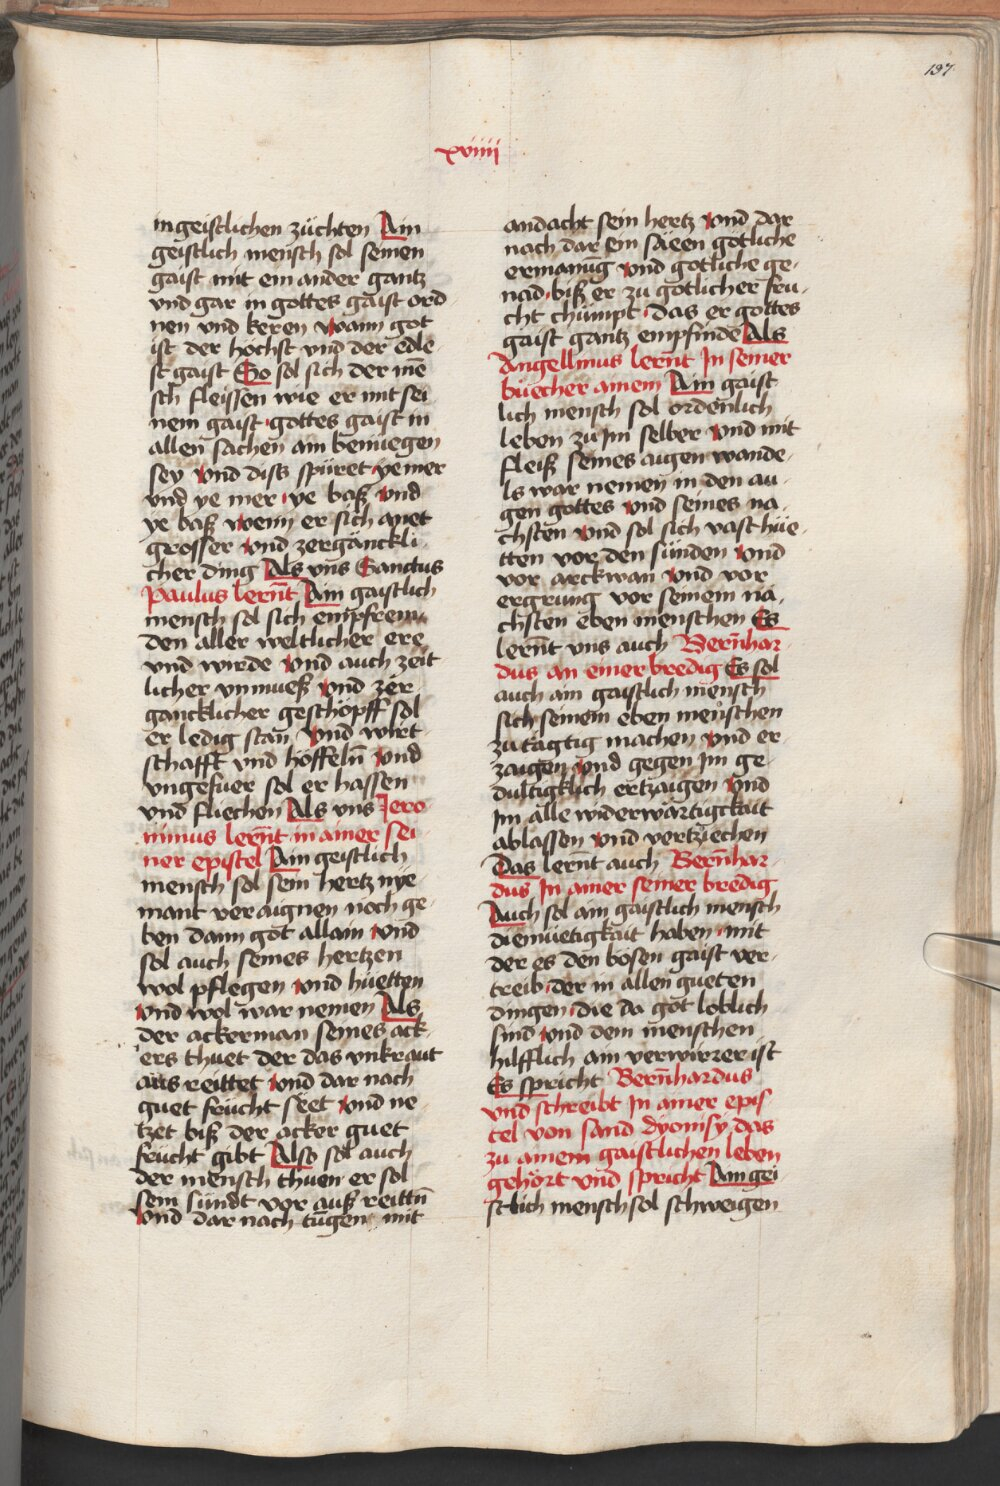 137
xviiij
in geistlichen züchten Ain
geistlich mensch sol seinen
gaist mit ein ander gantz
vnd gar in gottes gaist ord
nen vnd keren wann got
ist der höchst vnd der edle
st gaist So sol sich der mē
sch fleissen wie er mit sei
nem gaist gottes gaist in
allen sachen ain benuegen
sey vnd diss spüret ye mer
vnd ye mer ye baß vnd
ye baß wenn er sich anet
grosser vnd zergänckli
cher ding Als vns Sanctus
paulus lernt Ain gaistlich
mensch sol sich empfrem
den aller weltlicher ere
vnd wirde vnd auch zeit
licher vnmueß vnd zer
gancklicher geschöpff sol
er ledig stan vnd wirt
schafft vnd höffeln vnd
vngefuer sol er hassen
vnd fliechen Als vns Jero
nimus lernt in ainer sei
ner epistel Ain geistlich
mensch sol sein hertz nye
mant veraugnen noch ge
ben dann got allain vnd
sol auch seines hertzen
wol pflegen vnd hüetten
vnd wol war nemen Als
der ackerman seines ack
ers thuet der das vnkraut
aus reittet vnd dar nach
guet frücht seet vnd ne
tzet biß der acker guet
frücht gibt Also sol auch
der mensch thuen er sol
sein sündt vor auß reittn̄
vnd dar nach tugen mit
andacht sein hertz vnd dar
nach dar ein säen götliche
ermanūg vnd gotliche ge
nad biß er zu götlicher fru
cht chumpt das er gottes
gaist gantz empfinde Als
Angellinus lernt In seiner
büecher ainem Ain gaist
lich mensch sol ordenlich
leben zu im selber vnd mit
fleiß seines aigen wande
ls war nemen in den au
gen gottes vnd seines na
chsten vnd sol sich vast hüe
tten vor den sünden vnd
vor arckwan vnd vor
ergrung vor seinem nä
chsten eben menschen Es
lernt vns auch Bern̄har
dus an einer bredig Es sol
auch ain gaistlich mensch
sich seinem eben menschen
zu tägtig machen vnd er
zaigen vnd gegen im ge
dultigklich ertzaigen vnd
im alle widerwärtigkait
ablassen vnd vertziechen
Das lernt auch Bern̄har
dus In ainer seiner bredig
Auch sol ain gaistlich mensch
diemüetigkait haben mit
der es den bösen gaist ver
treib der in allen gueten
dingen die da got loblich
sind vnd dem menschen
hilfflich ain verwirrer ist
Es spricht Bern̄hardus
vnd schreibt In ainer epis
tel von sand dyonisy das
zu ainem gaistlichen leben
gehört vnd spricht Ain gei
stlich mensch sol schweigen